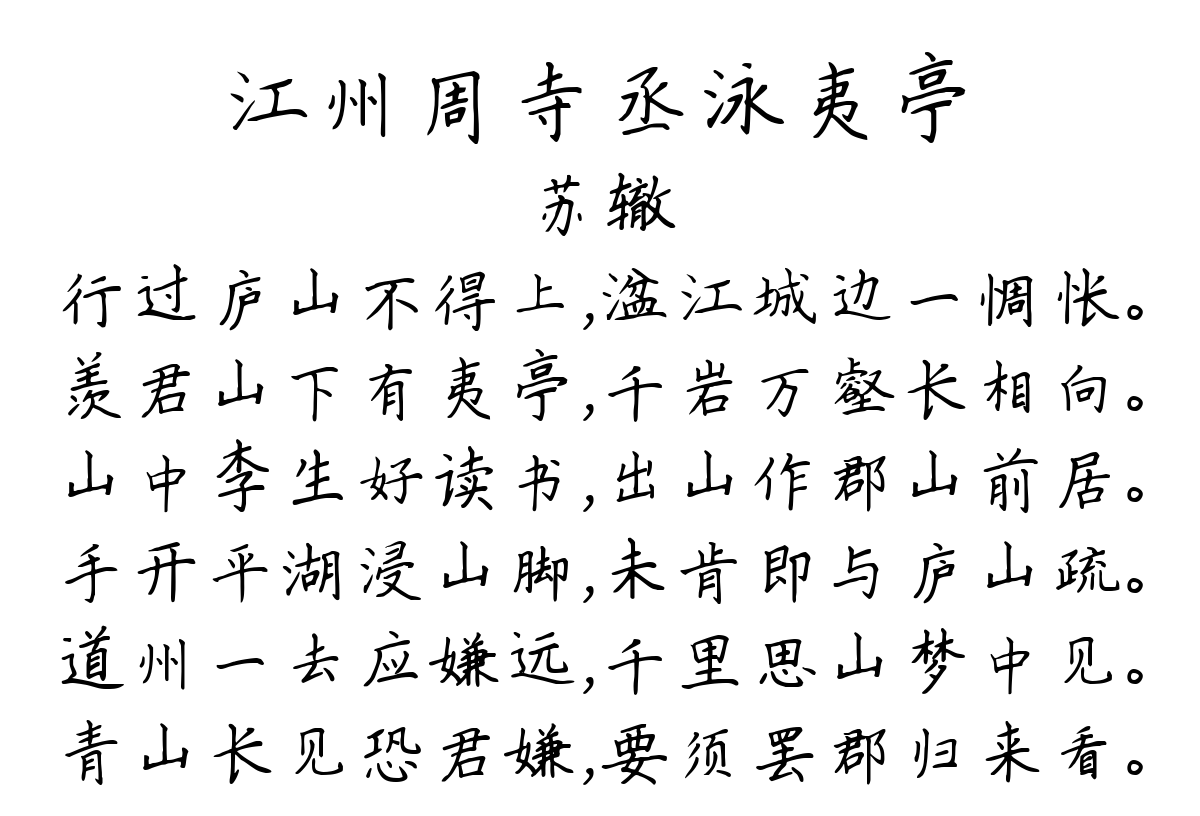 江州周寺丞泳夷亭
苏辙
行过庐山不得上,湓江城边一惆怅。
羡君山下有夷亭,千岩万壑长相向。
山中李生好读书,出山作郡山前居。
手开平湖浸山脚,未肯即与庐山疏。
道州一去应嫌远,千里思山梦中见。
青山长见恐君嫌,要须罢郡归来看。